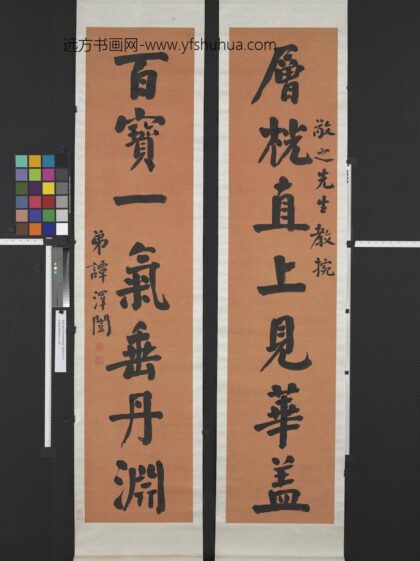 远方书画网-www.yfshuhua.com
敬之先生教挽
層桄直上見華盖
百寶一氣垂丹淵
弟譚澤闓